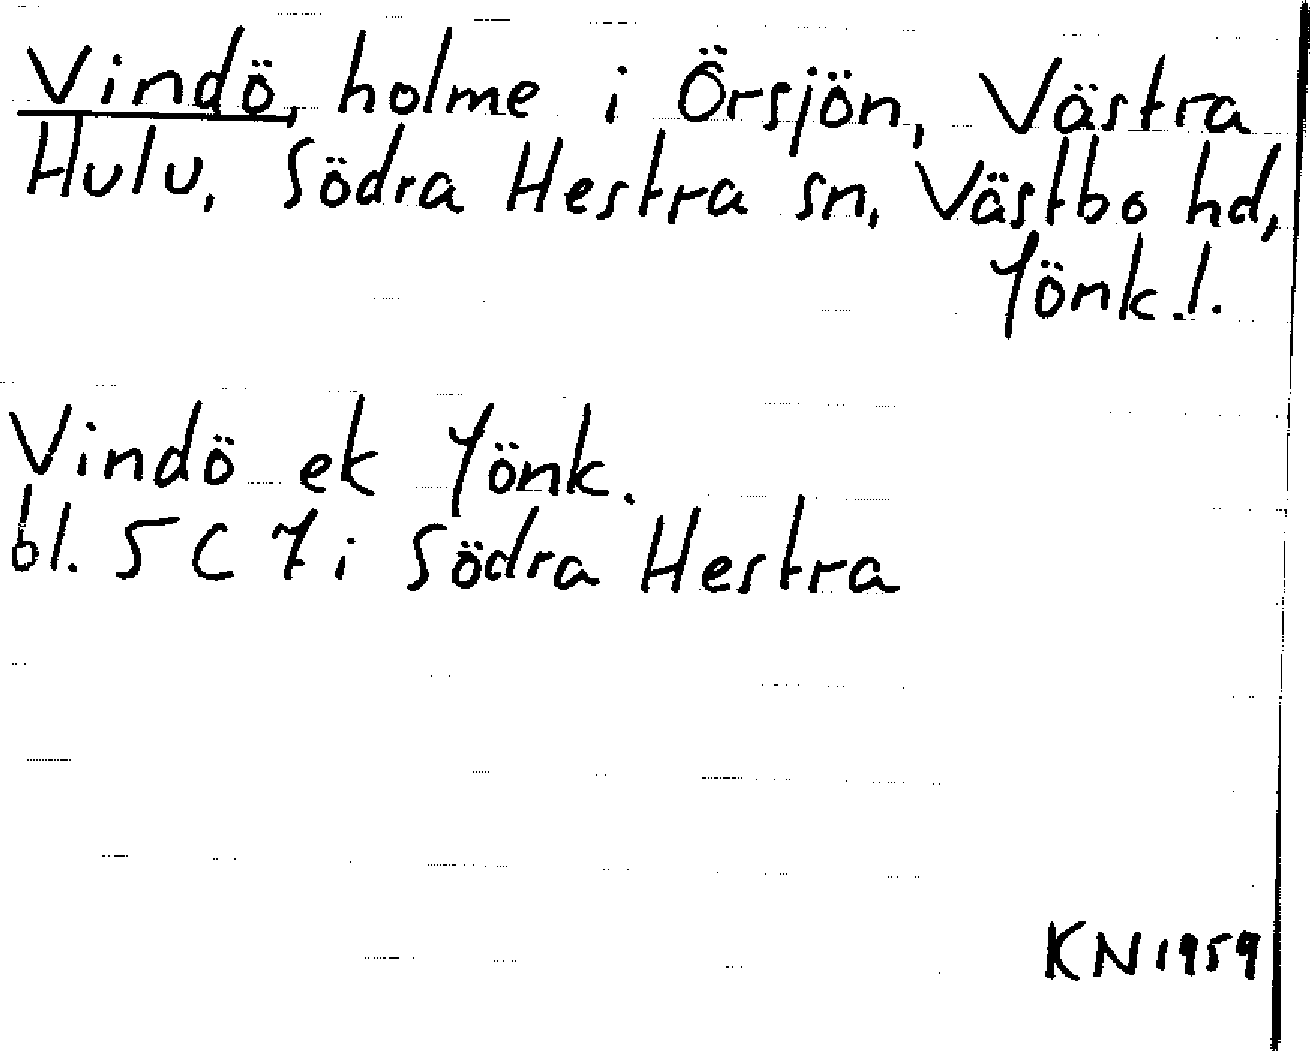 Vindö, holme i Örsjön, Västra
Hulu, Södra Hestra sn, Västbo hd,
Jönk.l.
Vindö ek Jönk.
bl. 5 C 7 i Södra Hestra
KN 1959